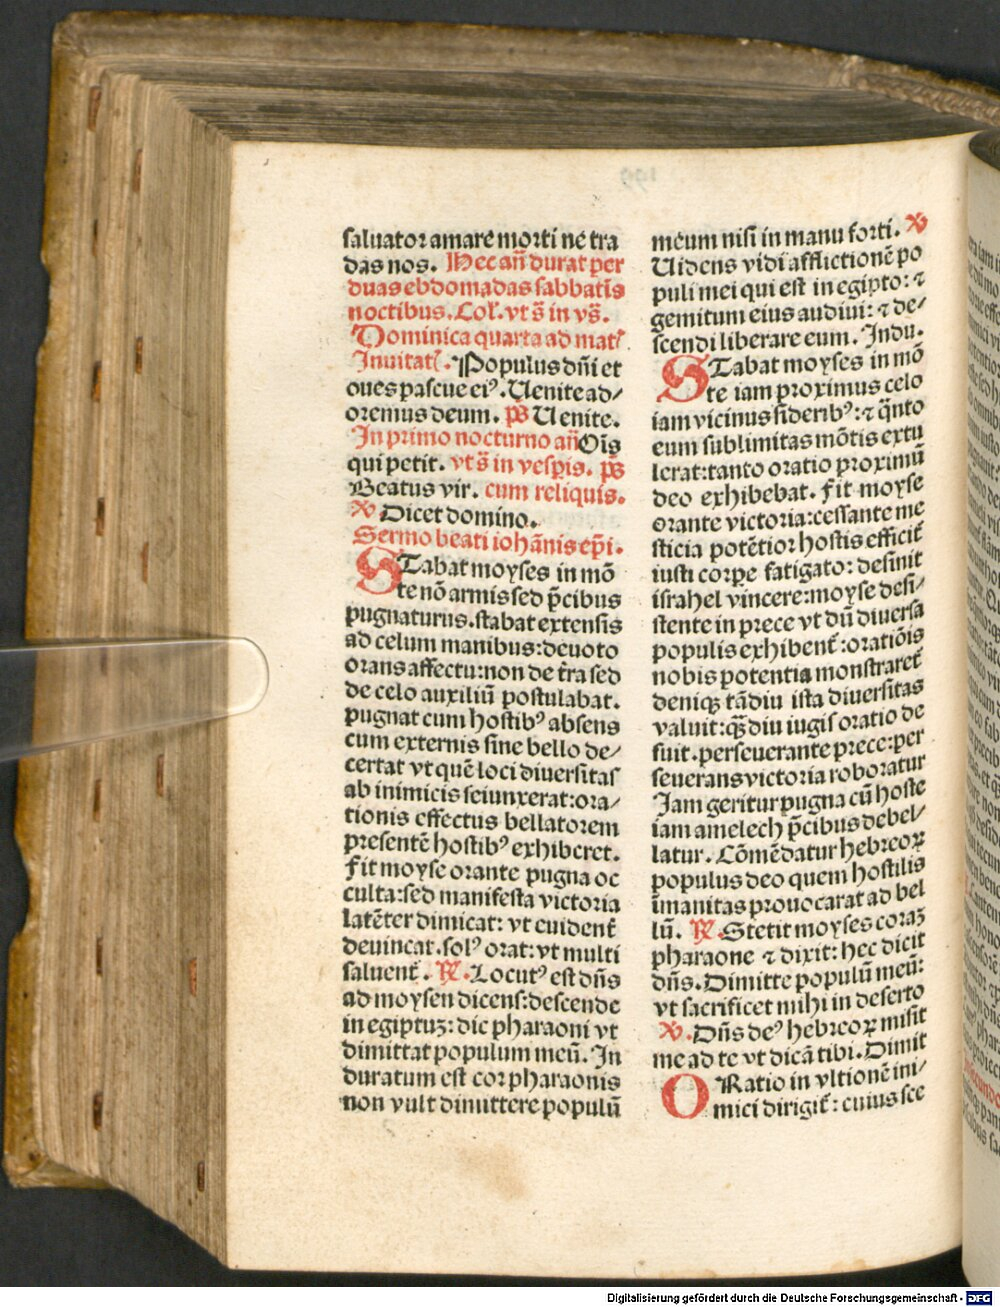 saluator amare morti ne tra
das nos. Hec an̄ durat per
duas ebdomadas sabbatīs
noctibus. Col'. vt s̄ in vs̄.
Dominica quarta ad mat'
Inuitat'. Populus dn̄i et
oues pascue ei⁹. Uenite ad/
oremus deum. ps̄ Uenite.
In primo nocturno an̄ Oīs
qui petit. vt s̄ in vesp̄is. ps̄
Beatus vir. cum reliquis.
℣ Dicet domino.
Sermo beati iohānis ep̄i.
STabat moyses in mō
te nō armis sed p̄cibus
pugnaturus. stabat extensis
ad celum manibus: deuoto
orans affectu: non de t̄ra sed
de celo auxiliū postulabat.
pugnat cum hostib⁹ absens
cum externis sine bello de/
certat vt quē loci diuersitas
ab inimicis seiunxerat: ora/
tionis effectus bellatorem
presentē hostib⁹ exhiberet.
Fit moyse orante pugna oc
culta: sed manifesta victoria
latēter dimicat: vt euident̄
deuincat. sol⁹ orat: vt multi
saluent̄. ℟. Locut⁹ est dn̄s
ad moysen dicens: descende
in egiptuꝫ: dic pharaoni vt
dimittat populum meū. In
duratum est cor pharaonis
non vult dimittere populū
meum nisi in manu forti. ℣
Uidens vidi afflictionē po
puli mei qui est in egipto: ⁊
gemitum eius audiui: ⁊ de/
scendi liberare eum. Indu.
STabat moyses in mō
te iam proximus celo
iam vicinus siderib⁹: ⁊ q̄nto
eum sublimitas mōtis extu
lerat: tanto oratio proximū
deo exhibebat. Fit moyse
orante victoria: cessante me
sticia potētior hostis efficit̄
iusti corpe fatigato: desinit
israhel vincere: moyse desi/
stente in prece vt dū diuersa
populis exhibent̄: oratiōis
nobis potentia monstraret̄
deniqꝫ tādiu ista diuersitas
valuit: qꝫdiu iugis oratio de
fuit. perseuerante prece: per
seuerans victoria roboratur
Jam geritur pugna cū hoste
iam amelech p̄cibus debel/
latur. Cōmēdatur hebreoꝝ
populus deo quem hostilis
īmanitas prouocarat ad bel
lū. ℟. Stetit moyses coraꝫ
pharaone ⁊ dixit: hec dicit
dn̄s. Dimitte populū meū:
vt sacrificet mihi in deserto
℣. Dn̄s de⁹ hebreoꝝ misit
me ad te vt dicā tibi. Dimit
ORatio in vltionē ini/
mici dirigit̄: cuius sce
Digitalisierung gefördert durch die Deutsche Forschungsgemeinschaft - DFG